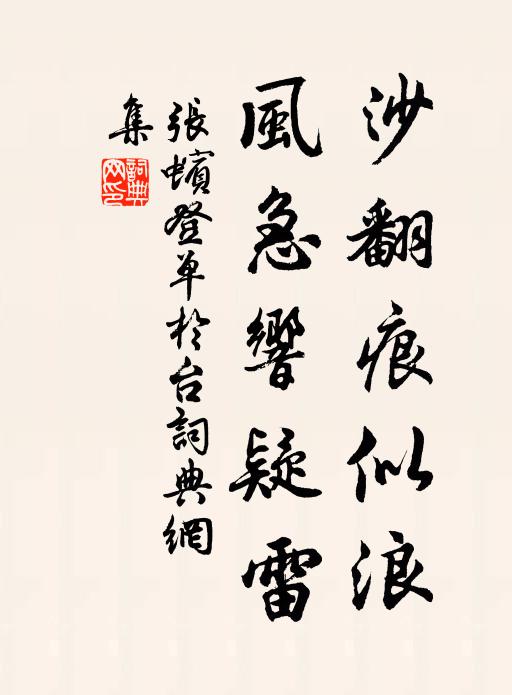 沙翻痕似浪
風急響疑雷
張蠙登单於台詞典網
集
詞典
网印